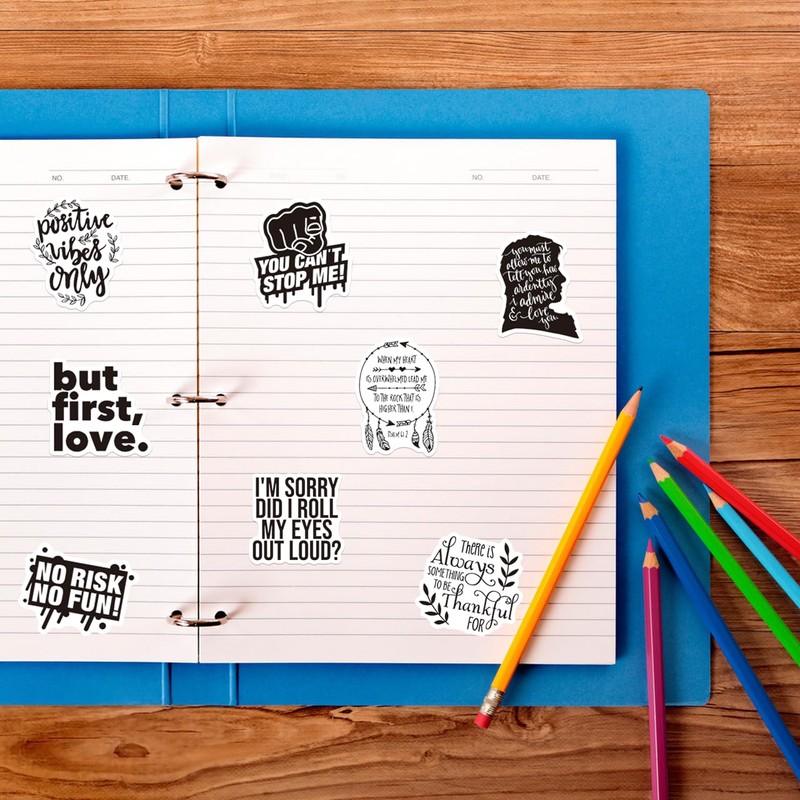 NO.
DATE.
NO.
DATE.
positive
vibes
only
YOU CAN'T
STOP ME!
you must
allow me to
tell you how
ardently
i admire
& love
you.
but
first,
love.
WHEN MY HEART
IS OVERWHELMED LEAD ME
TO THE ROCK THAT IS
HIGHER THAN I.
PSALM 61:2
I'M SORRY
DID I ROLL
MY EYES
OUT LOUD?
NO RISK
NO FUN!
THERE IS
Always
SOMETHING
TO BE
Thankful
FOR